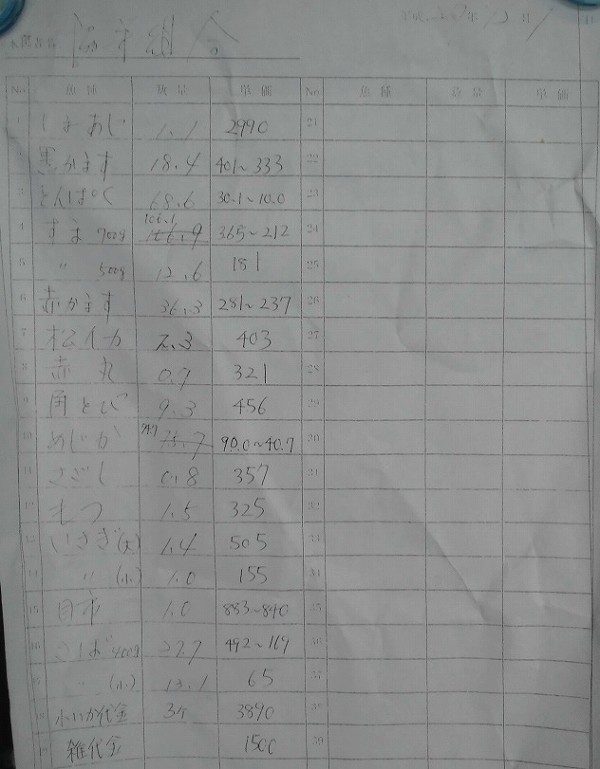 No. 魚種 数量 単価 No. 魚種 数量 単価
1 しまあじ 1.1 2990 21
2 黒かます 18.4 401~333 22
3 とんぼく 68.6 30.1~10.0 23
106.1
4 すま 700g 106.9 365~212 24
5 〃 500g 12.6 181 25
6 赤かます 36.3 281~237 26
7 松イカ 2.3 403 27
8 赤丸 0.7 321 28
9 角とび 9.3 456 29
10 めじか 75.7 90.0~40.7 30
11 さごし 0.8 357 31
12 もつ 1.5 325 32
13 いさぎ(大) 1.4 505 33
14 〃 (小) 1.0 155 34
15 1.0 883~840 35
16 さば 400g 27.7 492~169 36
17 〃 (小) 13.1 65 37
18 水いか代金 3890 38
19 雑代金 1500 39